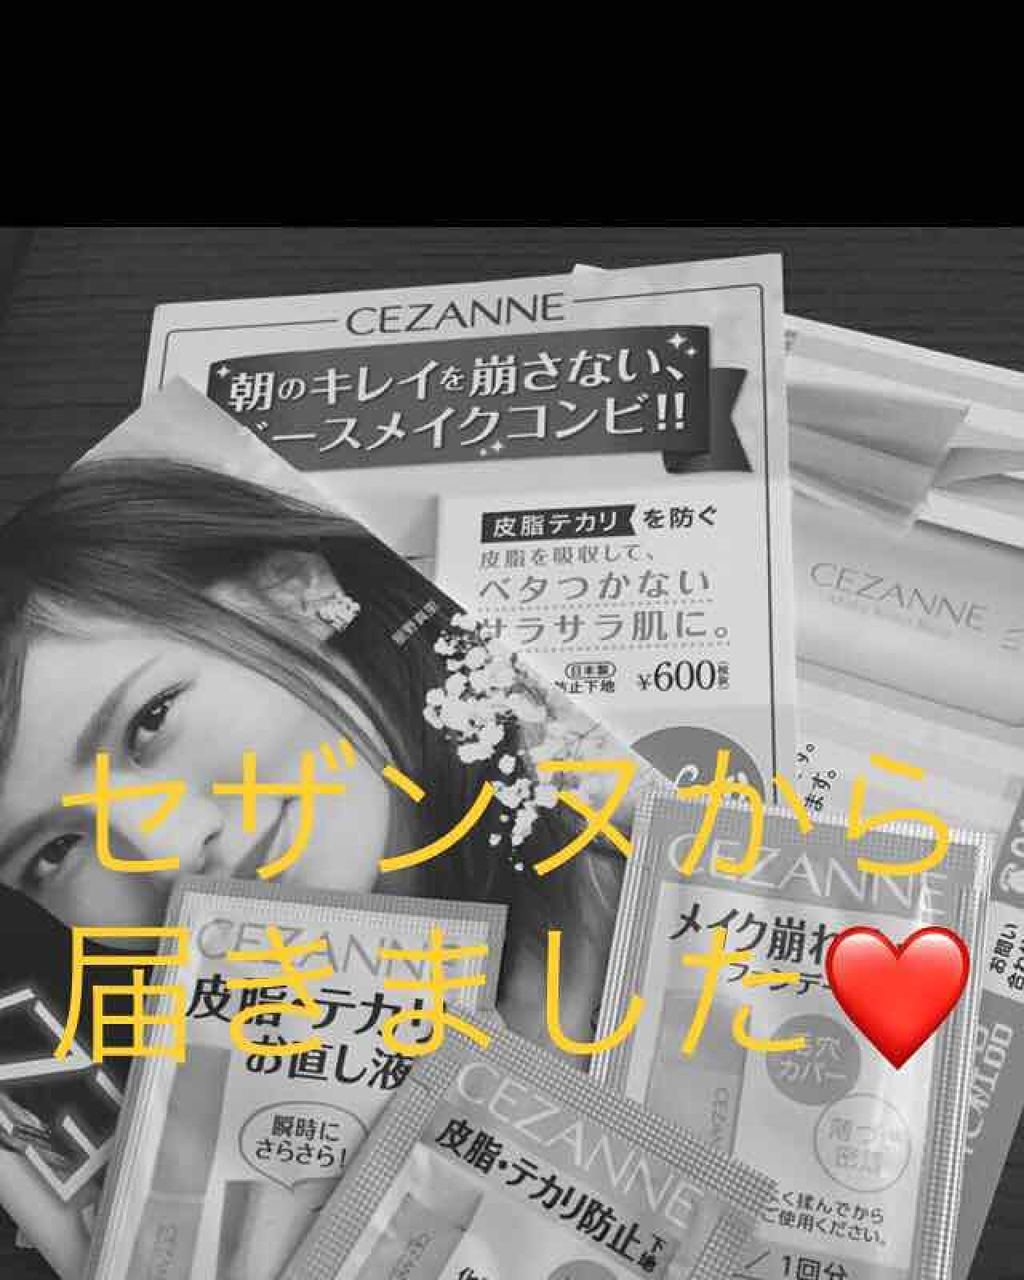 CEZANNE
朝のキレイを崩さない、
ベースメイクコンビ!!
皮脂テカリを防ぐ
皮脂を吸収して、
ベタつかない
サラサラ肌に。
日本製
防止下地 ¥600
CEZANNE
ます。
セザンヌから
届きました❤️
CEZANNE
メイク崩れ
ファンデー
毛穴
カバー
よく揉んでから
ご使用ください。
1回分
お問い
合わ
CEZANNE
皮脂・テカリ
お直し液
瞬時に
さらさら!
CEZANNE
皮脂・テカリ防止下地